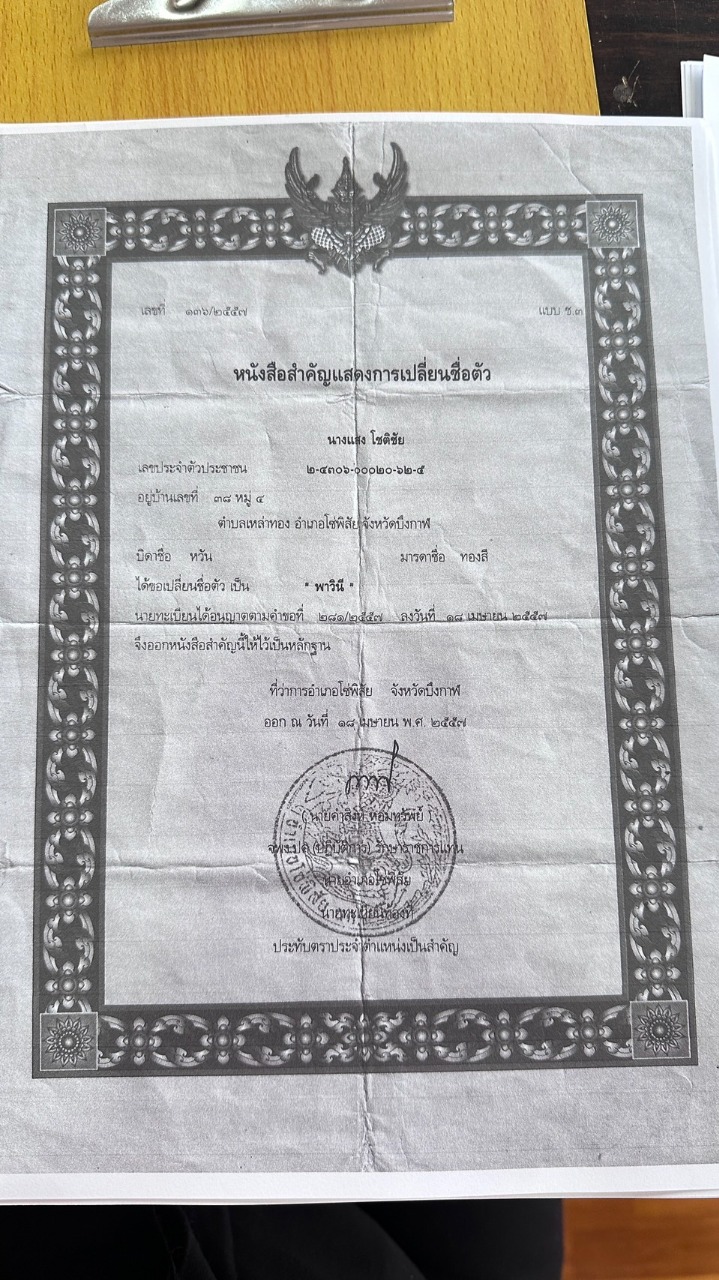 เลขที่ ๑๓๖/๒๕๕๗ แบบ ช.๓
หนังสือสำคัญแสดงการเปลี่ยนชื่อตัว
นางแสง โชติชัย
เลขประจำตัวประชาชน ๒-๔๓๐๖-๐๐๐๒๐-๖๒-๕
อยู่บ้านเลขที่ ๓๘ หมู่ ๔
ตำบลเหล่าทอง อำเภอโซ่พิสัย จังหวัดบึงกาฬ
บิดาชื่อ หวัน มารดาชื่อ ทองสี
ได้ขอเปลี่ยนชื่อตัว เป็น " พาวินี "
นายทะเบียนได้อนุญาตตามคำขอที่ ๒๘๑/๒๕๕๗ ลงวันที่ ๑๘ เมษายน ๒๕๕๗
จึงออกหนังสือสำคัญนี้ให้ไว้เป็นหลักฐาน
ที่ว่าการอำเภอโซ่พิสัย จังหวัดบึงกาฬ
ออก ณ วันที่ ๑๘ เมษายน พ.ศ. ๒๕๕๗
( นายคำสิงห์ หอมทรัพย์ )
จพง.ปค.(ปฏิบัติการ) รักษาราชการแทน
นายอำเภอโซ่พิสัย
นายทะเบียนท้องที่
ประทับตราประจำตำแหน่งเป็นสำคัญ